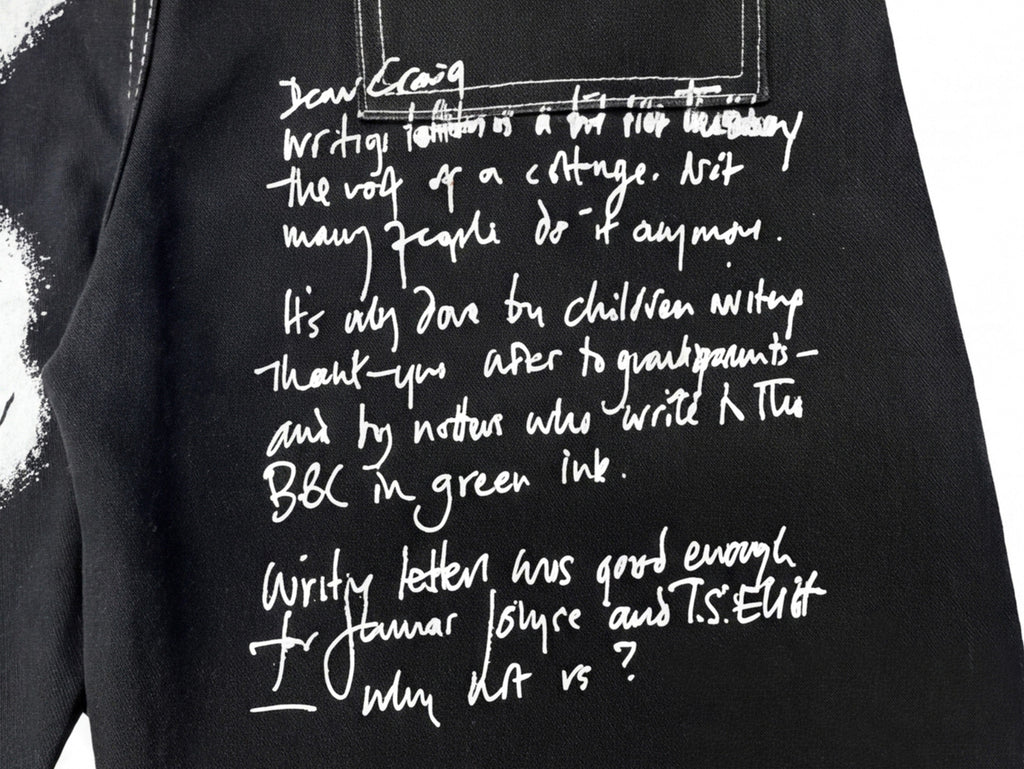 Dear Craig
writing letters is a bit like thatching
the roof of a cottage. Not
many people do it anymore.
It's only done by children writing
thank-yous to grandparents-
and by nutters who write to the
BBC in green ink.
writing letters was good enough
for James Joyce and T.S. Eliot
why not us?